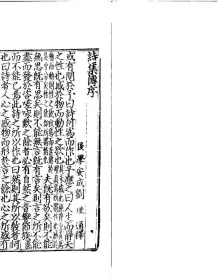 詩集傳序
後學安成劉瑾通釋
或有問於予曰詩何為而作也予應之曰人生而靜天
之性也感於物而動性之欲也
無思既有思矣則不能無言既有言矣則言之所不能
盡而發於咨嗟咏歎之餘者必有自然之音響節族
而不能已焉此詩之所以作也曰然則其所以教者何
也曰詩者人心之感物而形於言之餘也心之所感有